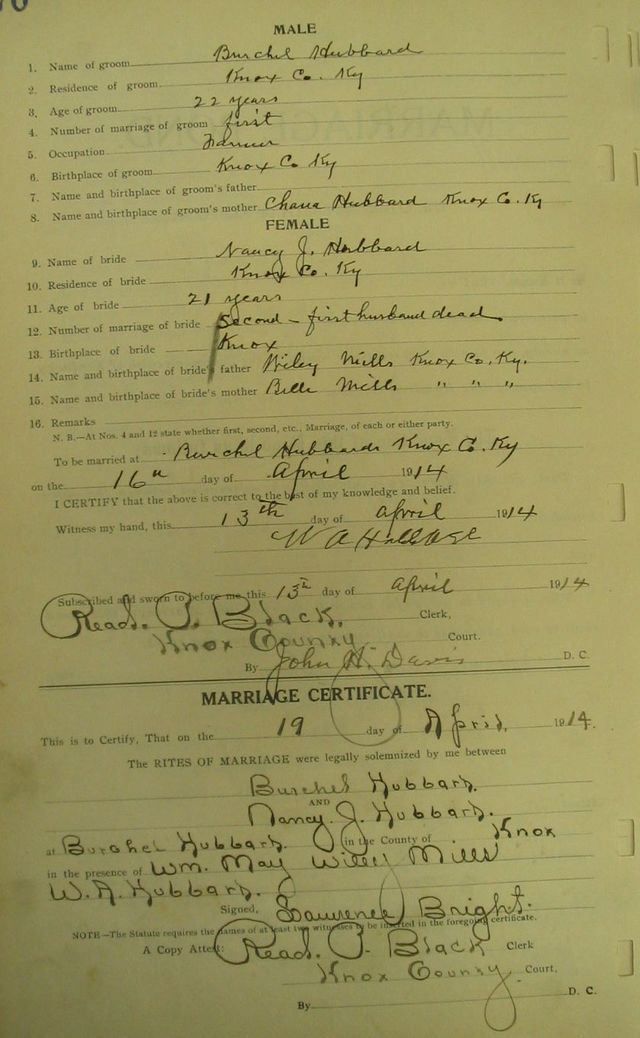 MALE
1. Name of groom Burchel Hubbard
2. Residence of groom Knox Co. Ky
3. Age of groom 22 years
4. Number of marriage of groom first
5. Occupation Farmer
6. Birthplace of groom Knox Co Ky
7. Name and birthplace of groom's father
8. Name and birthplace of groom's mother Hubbard Knox Co. Ky
FEMALE
9. Name of bride Nancy J. Hubbard
10. Residence of bride Knox Co. Ky
11. Age of bride 21 years
12. Number of marriage of bride Second - first husband dead
13. Birthplace of bride Knox
14. Name and birthplace of bride's father Wiley Mills Knox Co. Ky.
15. Name and birthplace of bride's mother Belle Mills " " "
16. Remarks
N. B.—At Nos. 4 and 12 state whether first, second, etc., Marriage, of each or either party.
To be married at Burchel Hubbards Knox Co. Ky
on the 16th day of April 1914
I CERTIFY that the above is correct to the best of my knowledge and belief.
Witness my hand, this 13th day of April 1914
W A
Subscribed and sworn to before me this 13th day of April 1914
Read. P. Black, Clerk,
Knox County Court.
By John H. Davis D. C.
MARRIAGE CERTIFICATE.
This is to Certify, That on the 19 day of April, 1914.
The RITES OF MARRIAGE were legally solemnized by me between
Burchel Hubbard.
AND
Nancy. J. Hubbard.
at Burchel Hubbard. in the County of Knox
in the presence of Wm. May Mills
W. A. Hubbard.
Signed, Lawrence Bright.
NOTE—The Statute requires the names of at least two witnesses to be inserted in the foregoing certificate.
A Copy Attest: Read. P. Black Clerk
Knox County Court,
By D. C.